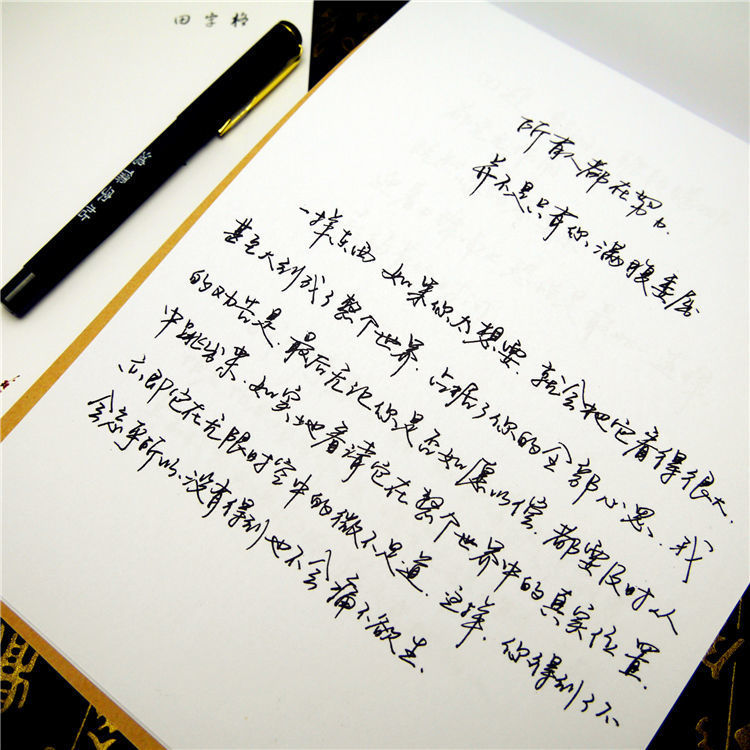 田字格
所有人都在努力.
并不是只有你满腹委屈
一样东西 如果你太想要. 就会把它看得很大.
甚至大到成了整个世界. 占据了你的全部心思. 我
的劝告是. 最后无论你是否如愿以偿. 都要及时从
中跳出来. 如实地看清它在整个世界中的真实位置.
亦即它在无限时空中的微不足道. 这样. 你得到了不
会忘乎所以. 没有得到也不会痛不欲生.